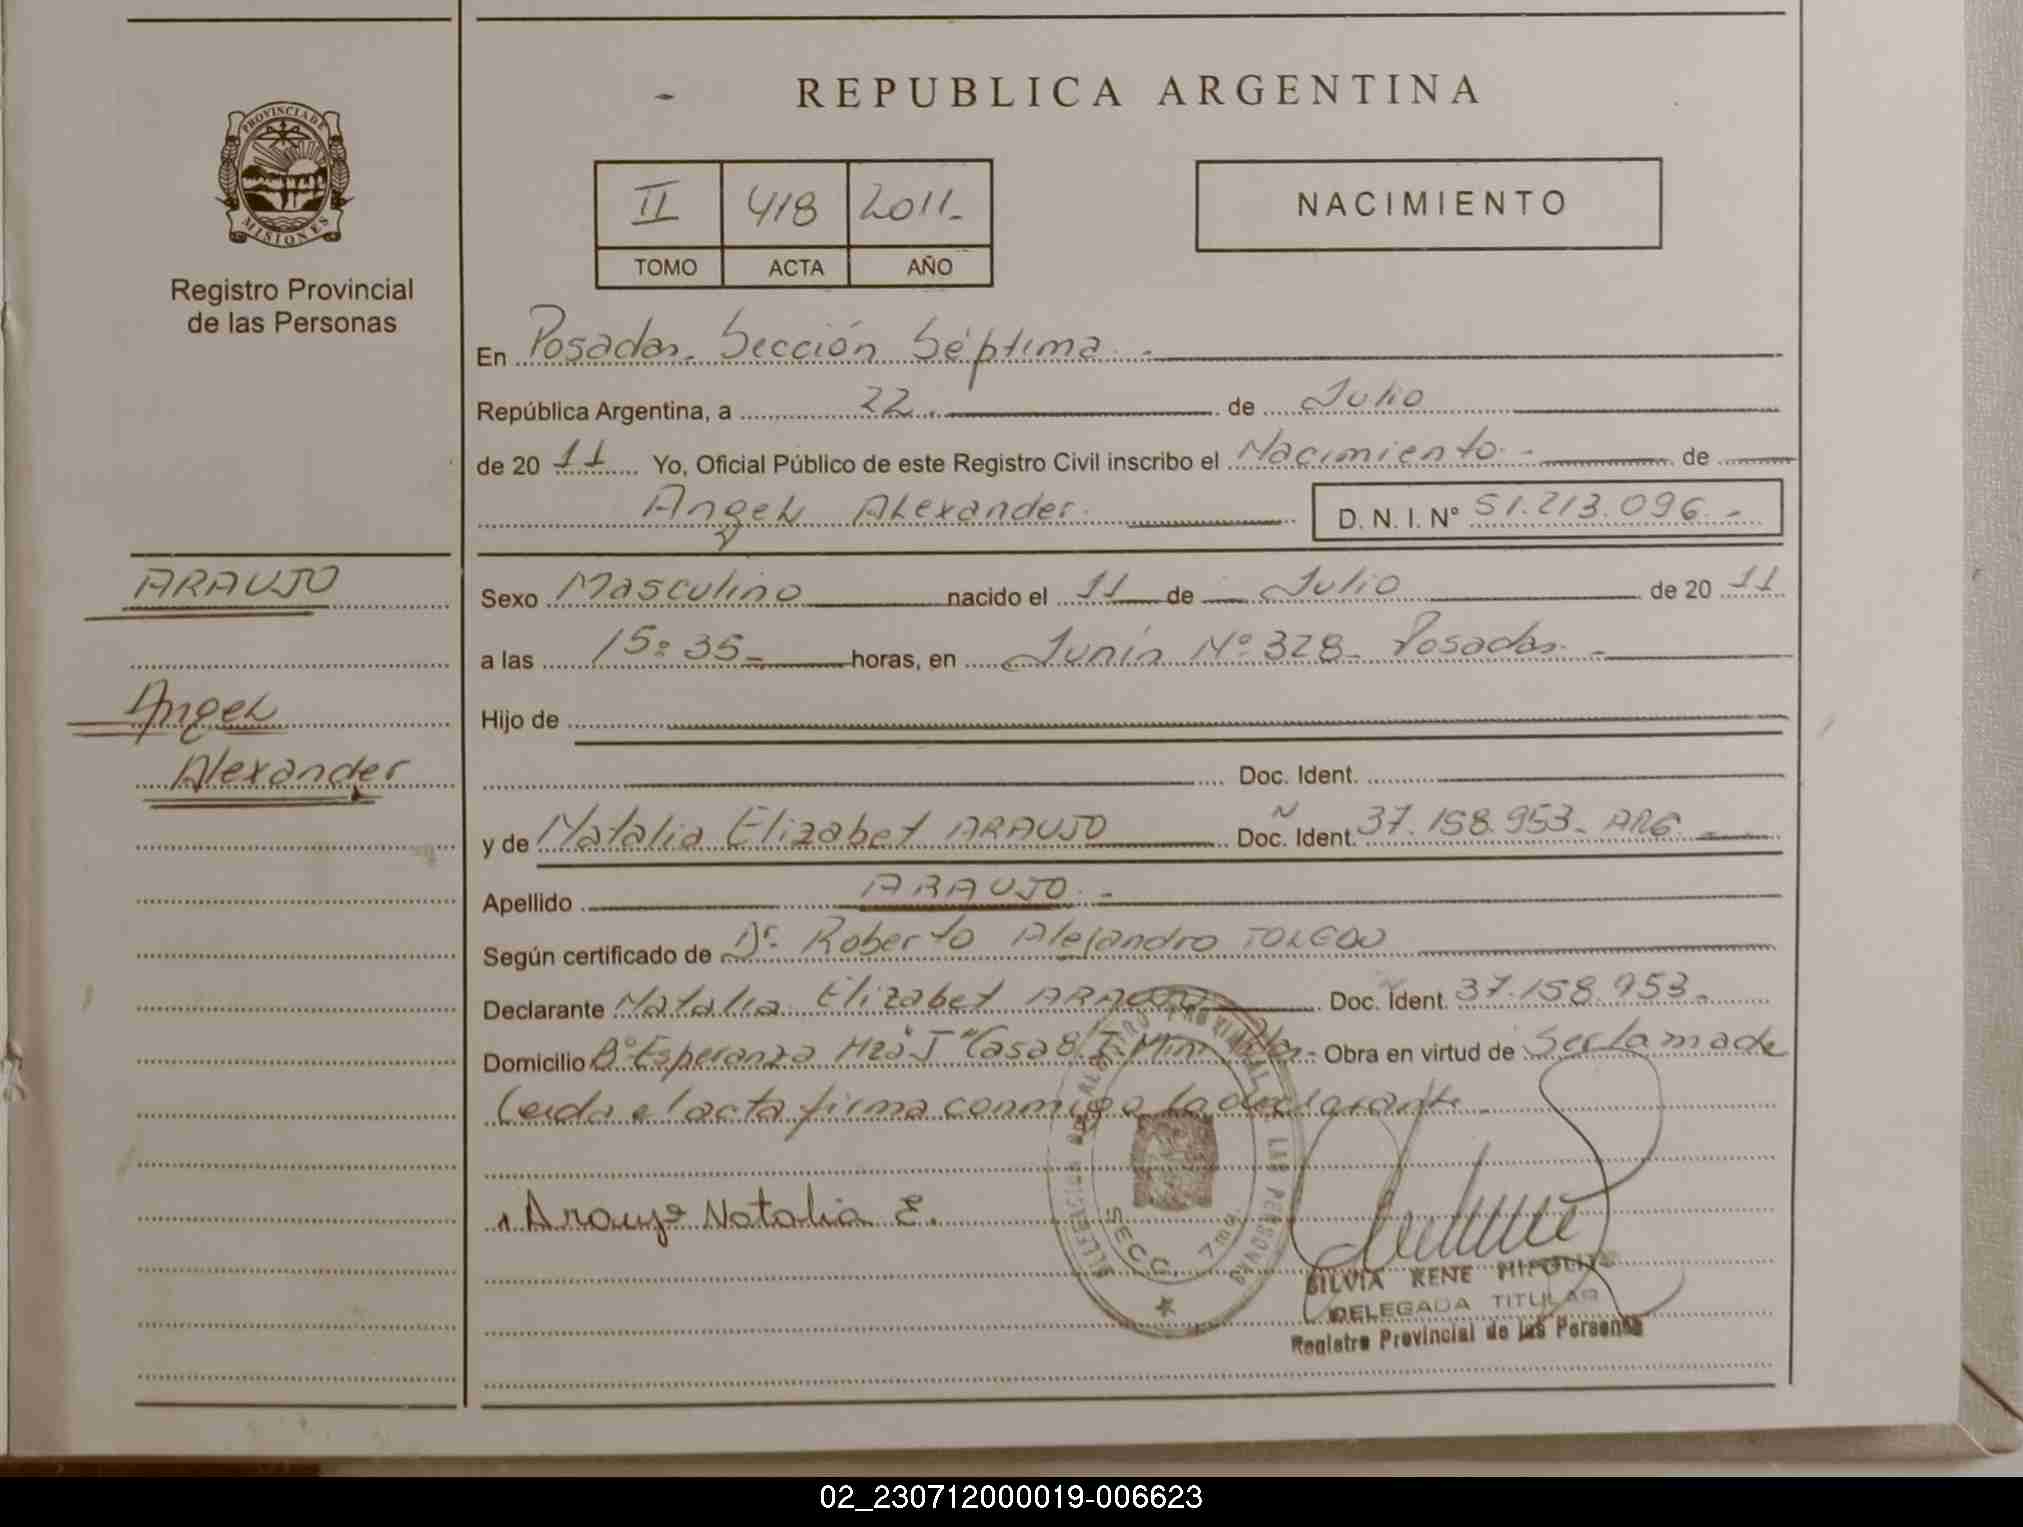 REPUBLICA ARGENTINA
PROVINCIA DE
MISIONES
Registro Provincial
de las Personas
II 418 2011
TOMO ACTA AÑO
NACIMIENTO
En Posadas. Sección Séptima.
República Argentina, a 22 de Julio
de 20 11 Yo, Oficial Público de este Registro Civil inscribo el Nacimiento de
Angel Alexander D. N. I. Nº 51.213.096.-
ARAUJO
Angel
Alexander
Sexo Masculino nacido el 11 de Julio de 20 11
a las 15:35 horas, en Junín Nº 328 Posadas
Hijo de
Doc. Ident.
y de Natalia Elizabet ARAUJO Doc. Ident. 37.158.953- ARG.
Apellido ARAUJO.-
Según certificado de Dr. Roberto Alejandro TOLEDO
Declarante Natalia Elizabet ARAUJO Doc. Ident. 37.158.953.
Domicilio Bº Esperanza Mza J Casa 8 Obra en virtud de ser la madre
Leida el acta firma conmigo la declarante.
Araujo Natalia E.
SECC. 7ma
SILVIA RENE
DELEGADA TITULAR
Registro Provincial de las Personas
02_230712000019-006623